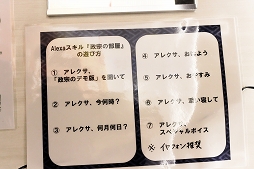 Alexaスキル『政宗の部屋』
の遊び方
① アレクサ、
「政宗のデモ版」を開いて
② アレクサ、今何時?
③ アレクサ、何月何日?
④ アレクサ、おはよう
⑤ アレクサ、おやすみ
⑥ アレクサ、壁ドンして
⑦ アレクサ、
スペシャルボイス
※ イヤフォン推奨